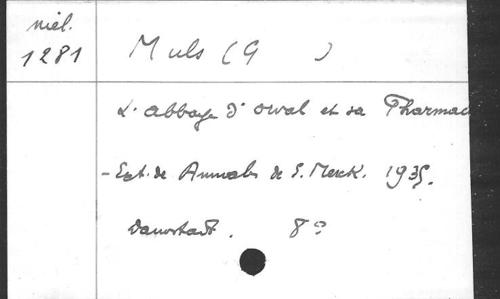 niel.
1281
Muls (G )
L'abbaye d'Orval et sa Pharmac
- Ext. de Annales de E. Merck. 1935.
Darmstadt. 8°